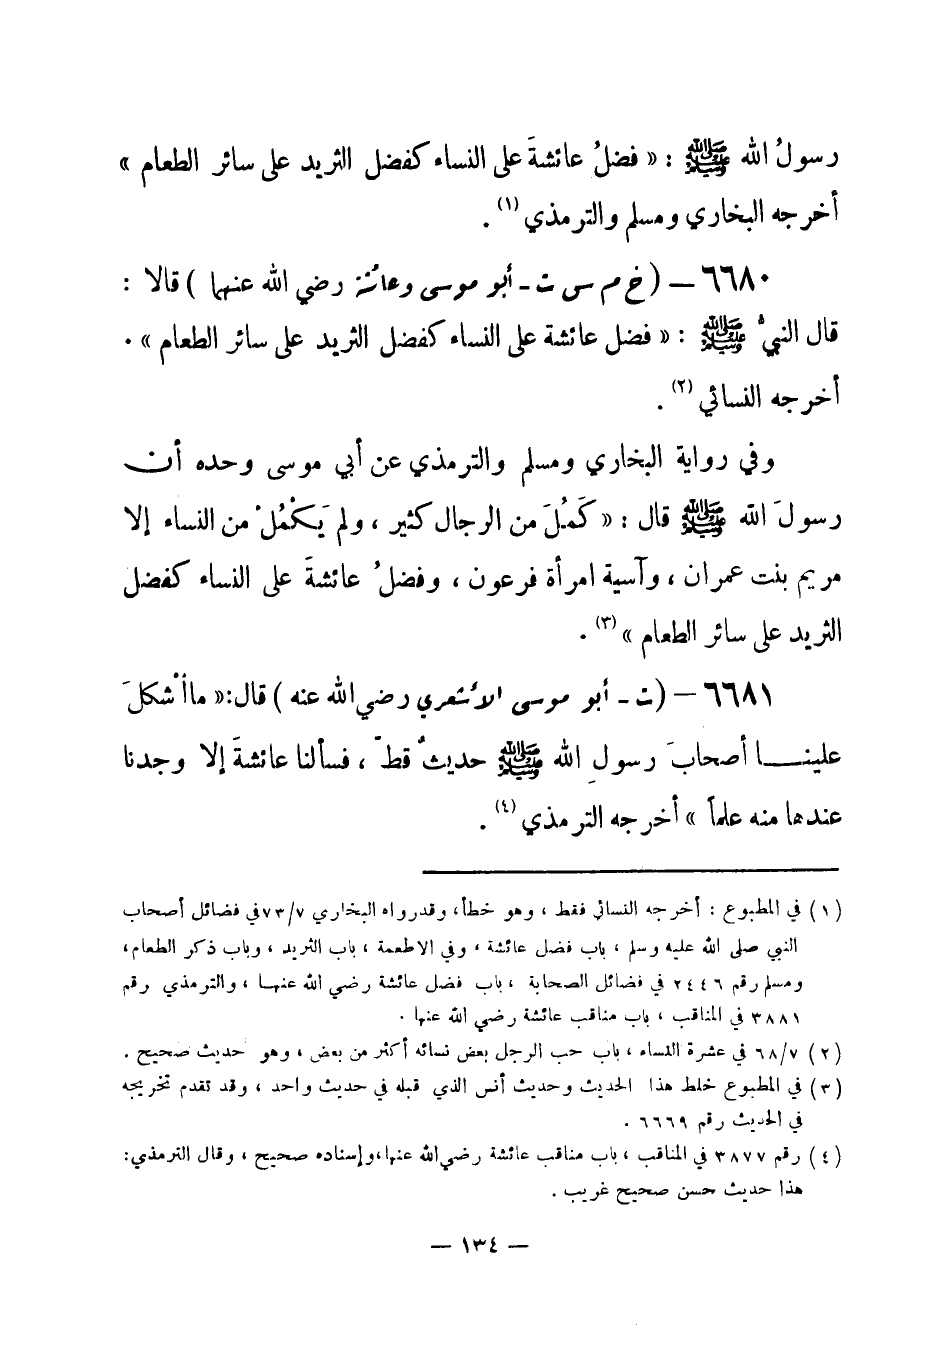 رسولُ الله ﷺ : « فضلُ عائشةَ على النساء كفضل الثريد على سائر الطعام »
أخرجه البخاري ومسلم والترمذي (١) .
٦٦٨٠ – ( خ م س ت - أبو موسى وعائشة رضي الله عنهما ) قالا :
قال النبيُّ ﷺ : « فضل عائشة على النساء كفضل الثريد على سائر الطعام » .
أخرجه النسائي (٢) .
وفي رواية البخاري ومسلم والترمذي عن أبي موسى وحده أن
رسولَ الله ﷺ قال : « كَمُلَ من الرجال كثير ، ولم يَكْمُلْ من النساء إلا
مريم بنت عمران ، وآسية امرأة فرعون ، وفضلُ عائشةَ على النساء كفضل
الثريد على سائر الطعام » (٣) .
٦٦٨١ – ( ت - أبو موسى الأشعري رضي الله عنه ) قال: « ما أشْكلَ
علينــا أصحابَ رسولِ الله ﷺ حديثٌ قطّ ، فسألنا عائشةَ إلا وجدنا
عندها منه علماً » أخرجه الترمذي (٤) .
(١) في المطبوع : أخرجه النسائي فقط ، وهو خطأ، وقد رواه البخاري ٧٣/٧ في فضائل أصحاب
النبي صلى الله عليه وسلم ، باب فضل عائشة ، وفي الاطعمة ، باب الثريد ، وباب ذكر الطعام،
ومسلم رقم ٢٤٤٦ في فضائل الصحابة ، باب فضل عائشة رضي الله عنهــا ، والترمذي رقم
٣٨٨١ في المناقب ، باب مناقب عائشة رضي الله عنها .
(٢) ٦٨/٧ في عشرة النساء ، باب حب الرجل بعض نسائه أكثر من بعض ، وهو حديث صحيح .
(٣) في المطبوع خلط هذا الحديث وحديث أنس الذي قبله في حديث واحد ، وقد تقدم تخريجه
في الحديث رقم ٦٦٦٩ .
(٤) رقم ٣٨٧٧ في المناقب ، باب مناقب عائشة رضي الله عنها، وإسناده صحيح ، وقال الترمذي:
هذا حديث حسن صحيح غريب .
– ١٣٤ –